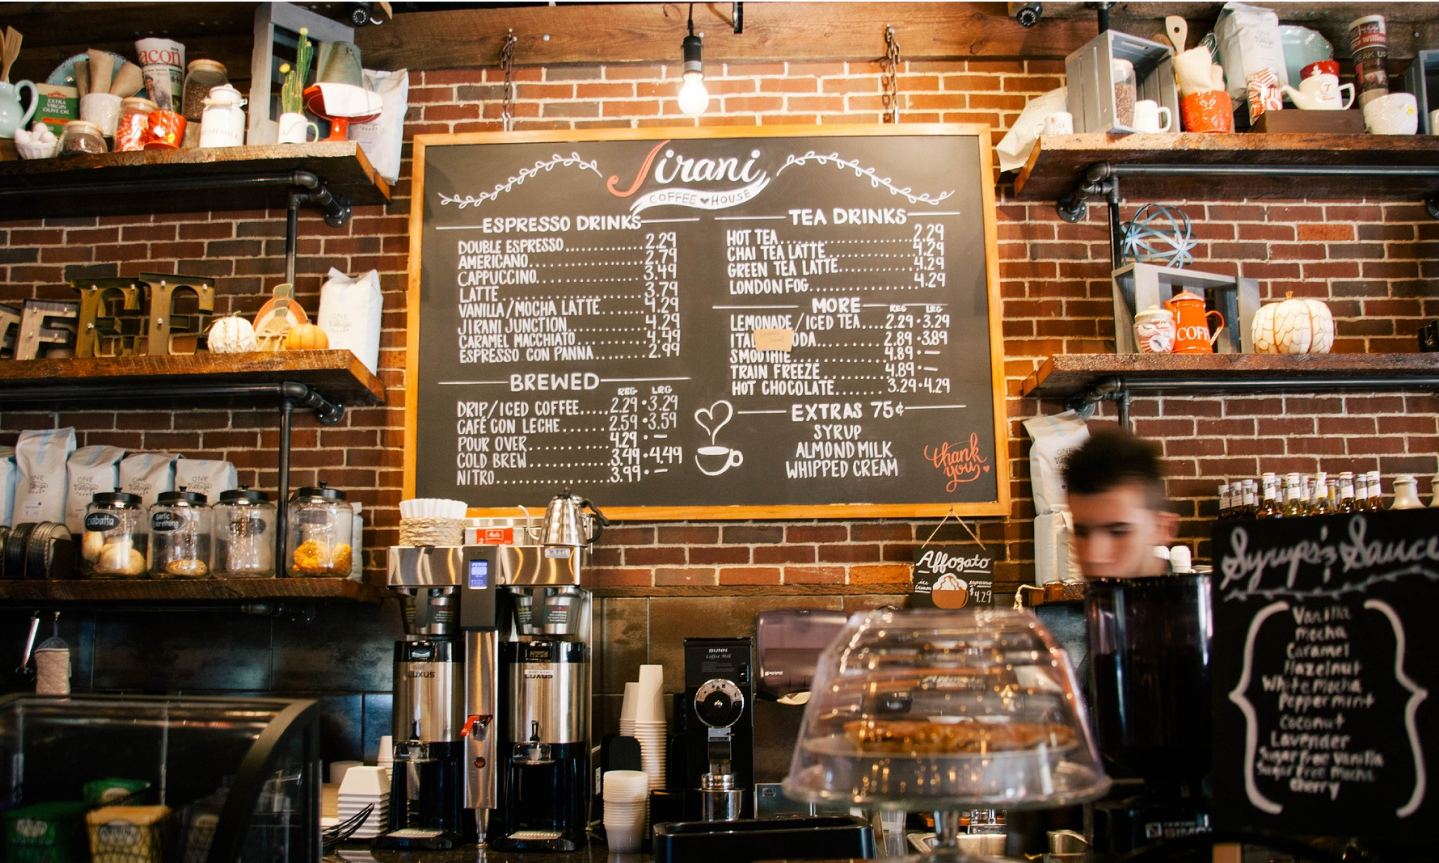 Jirani
COFFEE HOUSE
ESPRESSO DRINKS
DOUBLE ESPRESSO 2.29
AMERICANO 2.79
CAPPUCCINO 3.49
LATTE 3.79
VANILLA/MOCHA LATTE 4.29
JIRANI JUNCTION 4.29
CARAMEL MACCHIATO 4.49
ESPRESSO CON PANNA 2.99
BREWED
REG LRG
DRIP/ICED COFFEE 2.29 • 3.29
CAFÉ CON LECHE 2.59 • 3.59
POUR OVER 4.29 • —
COLD BREW 3.49 • 4.49
NITRO 3.99 • —
TEA DRINKS
HOT TEA 2.29
CHAI TEA LATTE 4.29
GREEN TEA LATTE 4.29
LONDON FOG 4.29
MORE
REG LRG
LEMONADE/ICED TEA 2.29 • 3.29
2.89 • 3.89
SMOOTHIE 4.89 • —
TRAIN FREEZE 4.89 • —
HOT CHOCOLATE 3.29 • 4.29
EXTRAS 75¢
SYRUP
ALMOND MILK
WHIPPED CREAM
thank you
Affogato
ice cream
espresso
$4.29
Syrups & Sauce
Vanilla
Mocha
Caramel
Hazelnut
White Mocha
Peppermint
Coconut
Lavender
Sugar free Vanilla
Sugar free Mocha
Cherry
EXTRA VIRGIN OLIVE OIL
acon
FFEE
COFF
ciabatta
BUNN
Coffee Mill
LUXUS
LUXUS